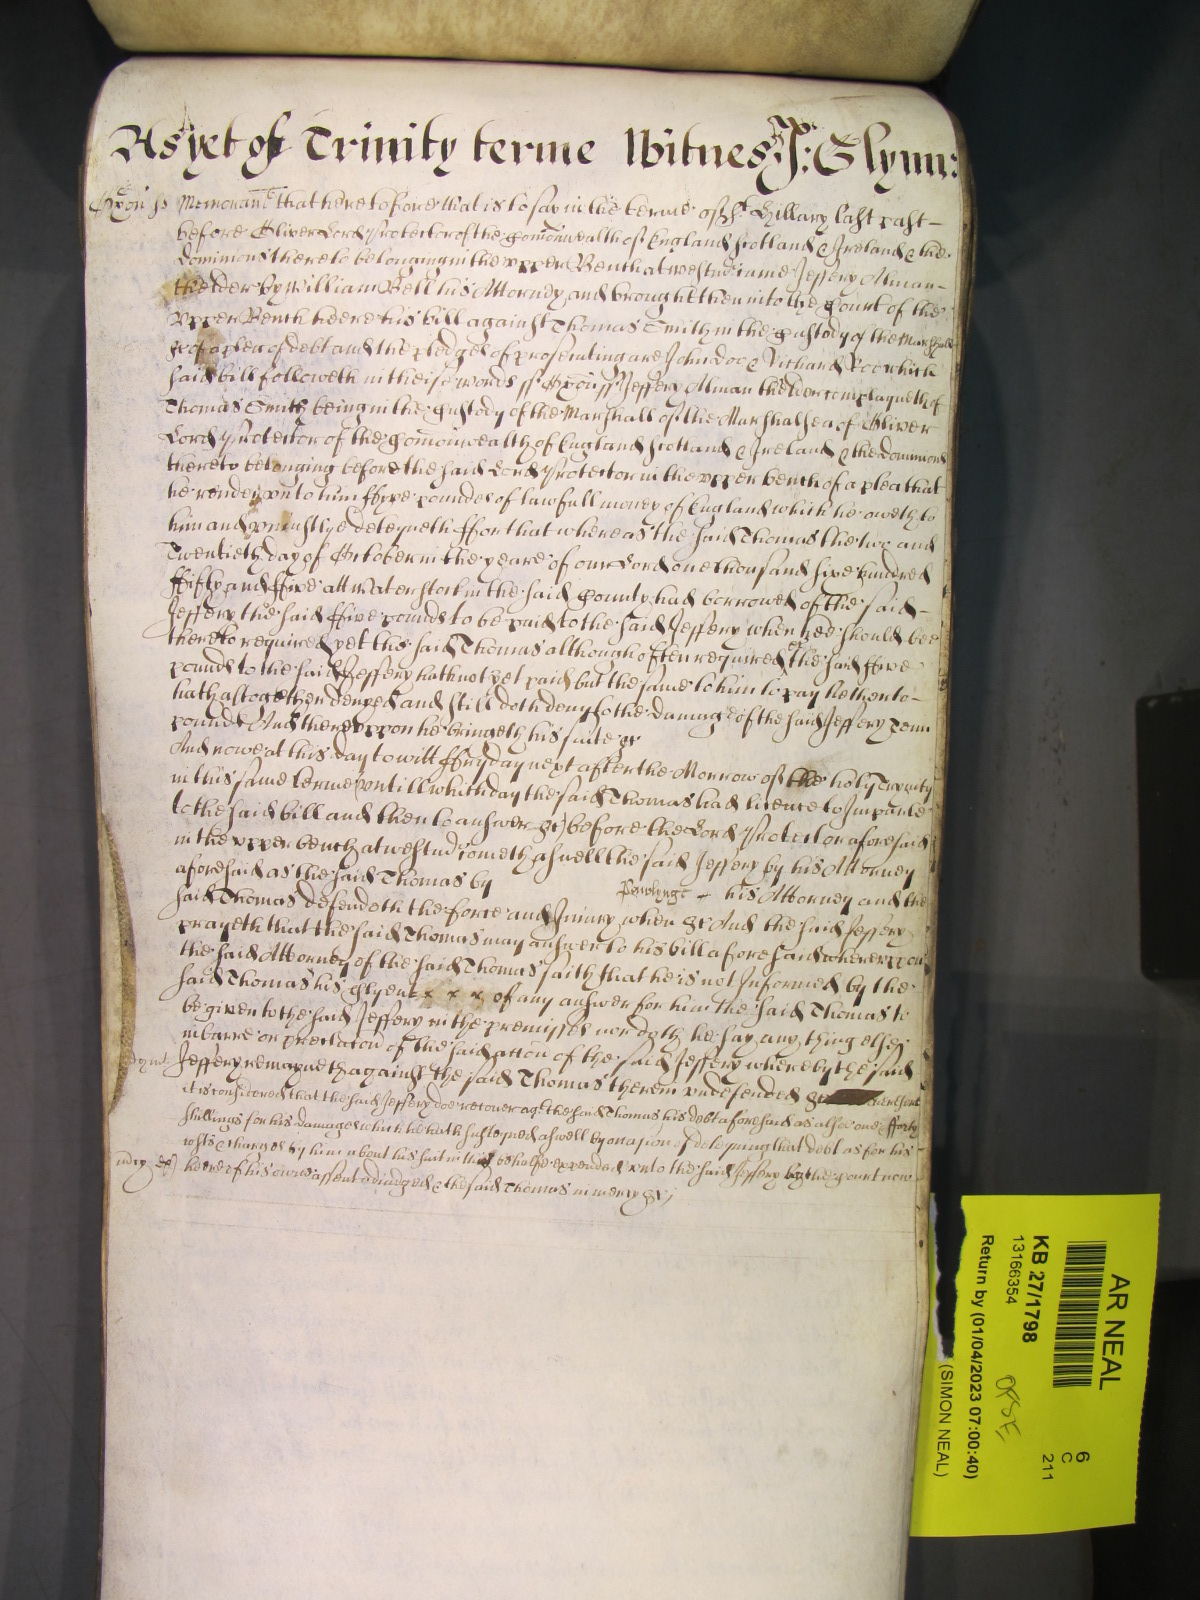 As yet of Trinity terme Witnes J: Glynn:
Oxon ss Memorand that heretofore that is to say in the terme of St Hillary last past
before Oliver Lord Protector of the Comonwealth of England Scotland & Ireland & the
dominions thereto belonging in the upper Bench at Westmr came Jeffery Alman
the elder by William Bell his Attorney and brought then into the Court of the
Upper Bench there his bill against Thomas Smith in the Custody of the Marshall
&c of a plea of debt and the pledges of prosecuting are John Doe & Richard Roe which
said bill followeth in theise words ss Oxon ss Jeffery Alman the elder complayneth of
Thomas Smith being in the Custody of the Marshall of the Marshalsea of Oliver
Lord Protector of the Comonwealth of England Scotland & Ireland & the dominions
thereto belonging before the said Lord Protector in the upper bench of a plea that
he render unto him ffyve pounds of lawfull money of England which he oweth to
him and uniustlye deteyneth ffor that whereas the said Thomas the two and
Twentieth day of October in the yeare of our Lord one thousand sixe hundred
ffifty and ffive att Waterstock in the said County had borrowed of the said
Jeffery the said ffive pounds to be paid to the said Jeffery when hee should bee
thereto required yet the said Thomas although often required the said ffive
pounds to the said Jeffery hath not yet paid but the same to him to pay hitherto
hath altogether denyed and still doth deny to the damage of the said Jeffery Tenn
pounds And thereuppon he bringeth his suite &c
And nowe at this day to witt ffryday next after the Morrow of the holy Trynity
in this same terme untill which day the said Thomas had licence to Imparle
to the said bill and then to answer &c) before the Lord Protector aforesaid
in the upper bench at Westmr cometh aswell the said Jeffery by his Attorney
aforesaid as the said Thomas by his Attorney and the
said Thomas defendeth the force and Iniury when &c And the said Jeffery
prayeth that the said Thomas may answer to his bill aforesaid whereuppon
the said Attorney of the said Thomas saith that he is not Informed by the
said Thomas his Clyent x x x of any answer for him the said Thomas to
be given to the said Jeffery in the premisses nor doth he say any thing else
in barre or preclucon of the said accon of the said Jeffery whereby the said
Jeffery remayneth against the said Thomas therein undefended &c Therefore
it is considered that the said Jeffery doe recover agt the said Thomas his debt aforesaid as alsoe one & fforty
shillings for his damages which he hath susteyned aswell by occasion of deteyning that debt as for his
costs & charges by him about his suit in this behalfe expended unto the said Jeffery by the Court now
heere of his owne assent adiudged & the said Thomas in mercy &c;
AR NEAL
6
C
211
KB 27/1798
13166354
Return by (01/04/2023 07:00:40)
(SIMON NEAL)